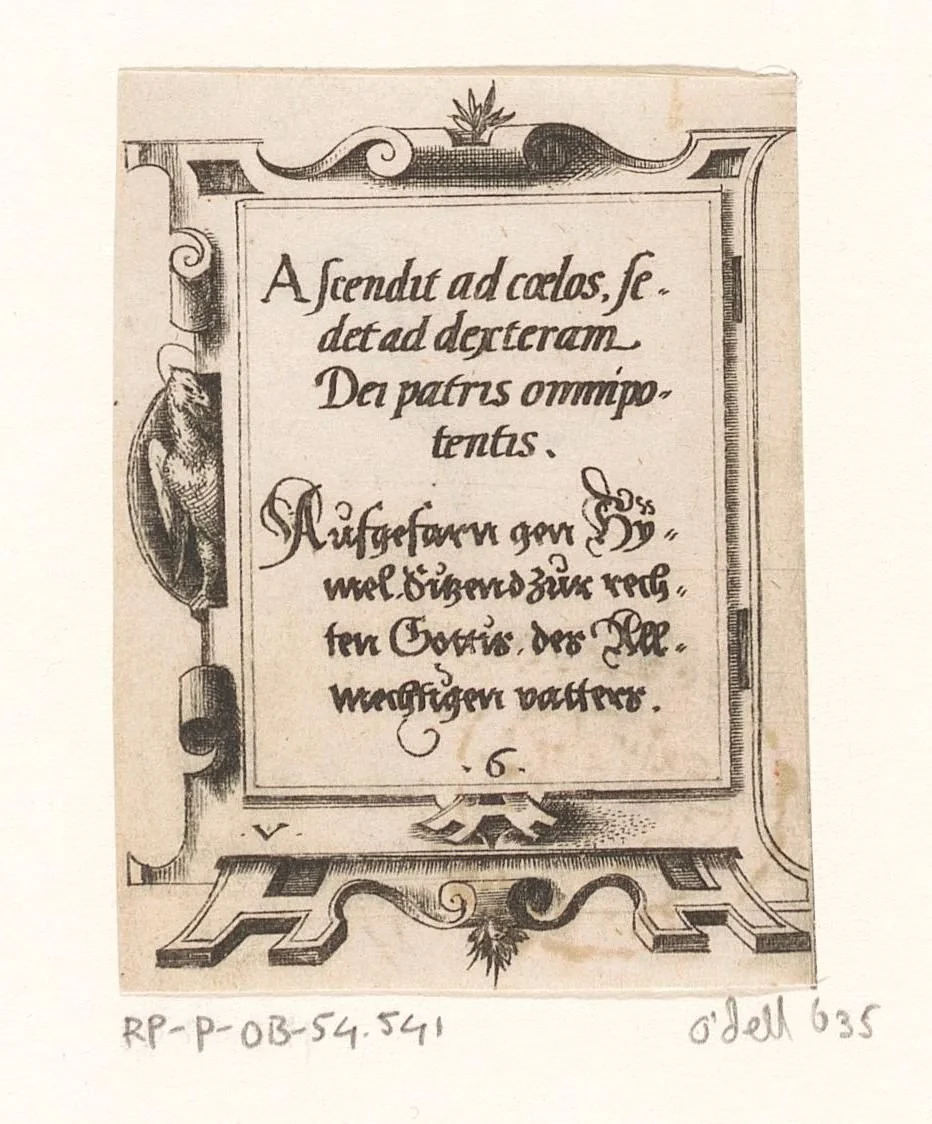 Ascendit ad cœlos, se-
det ad dexteram
Dei patris omnipo-
tentis.
Aufgefarn gen Hÿ-
mel. Sitzend zur rech-
ten Gottis, des All-
mechtigen vatters.
.6.
V
RP-P-OB-54.541
O'dell 635